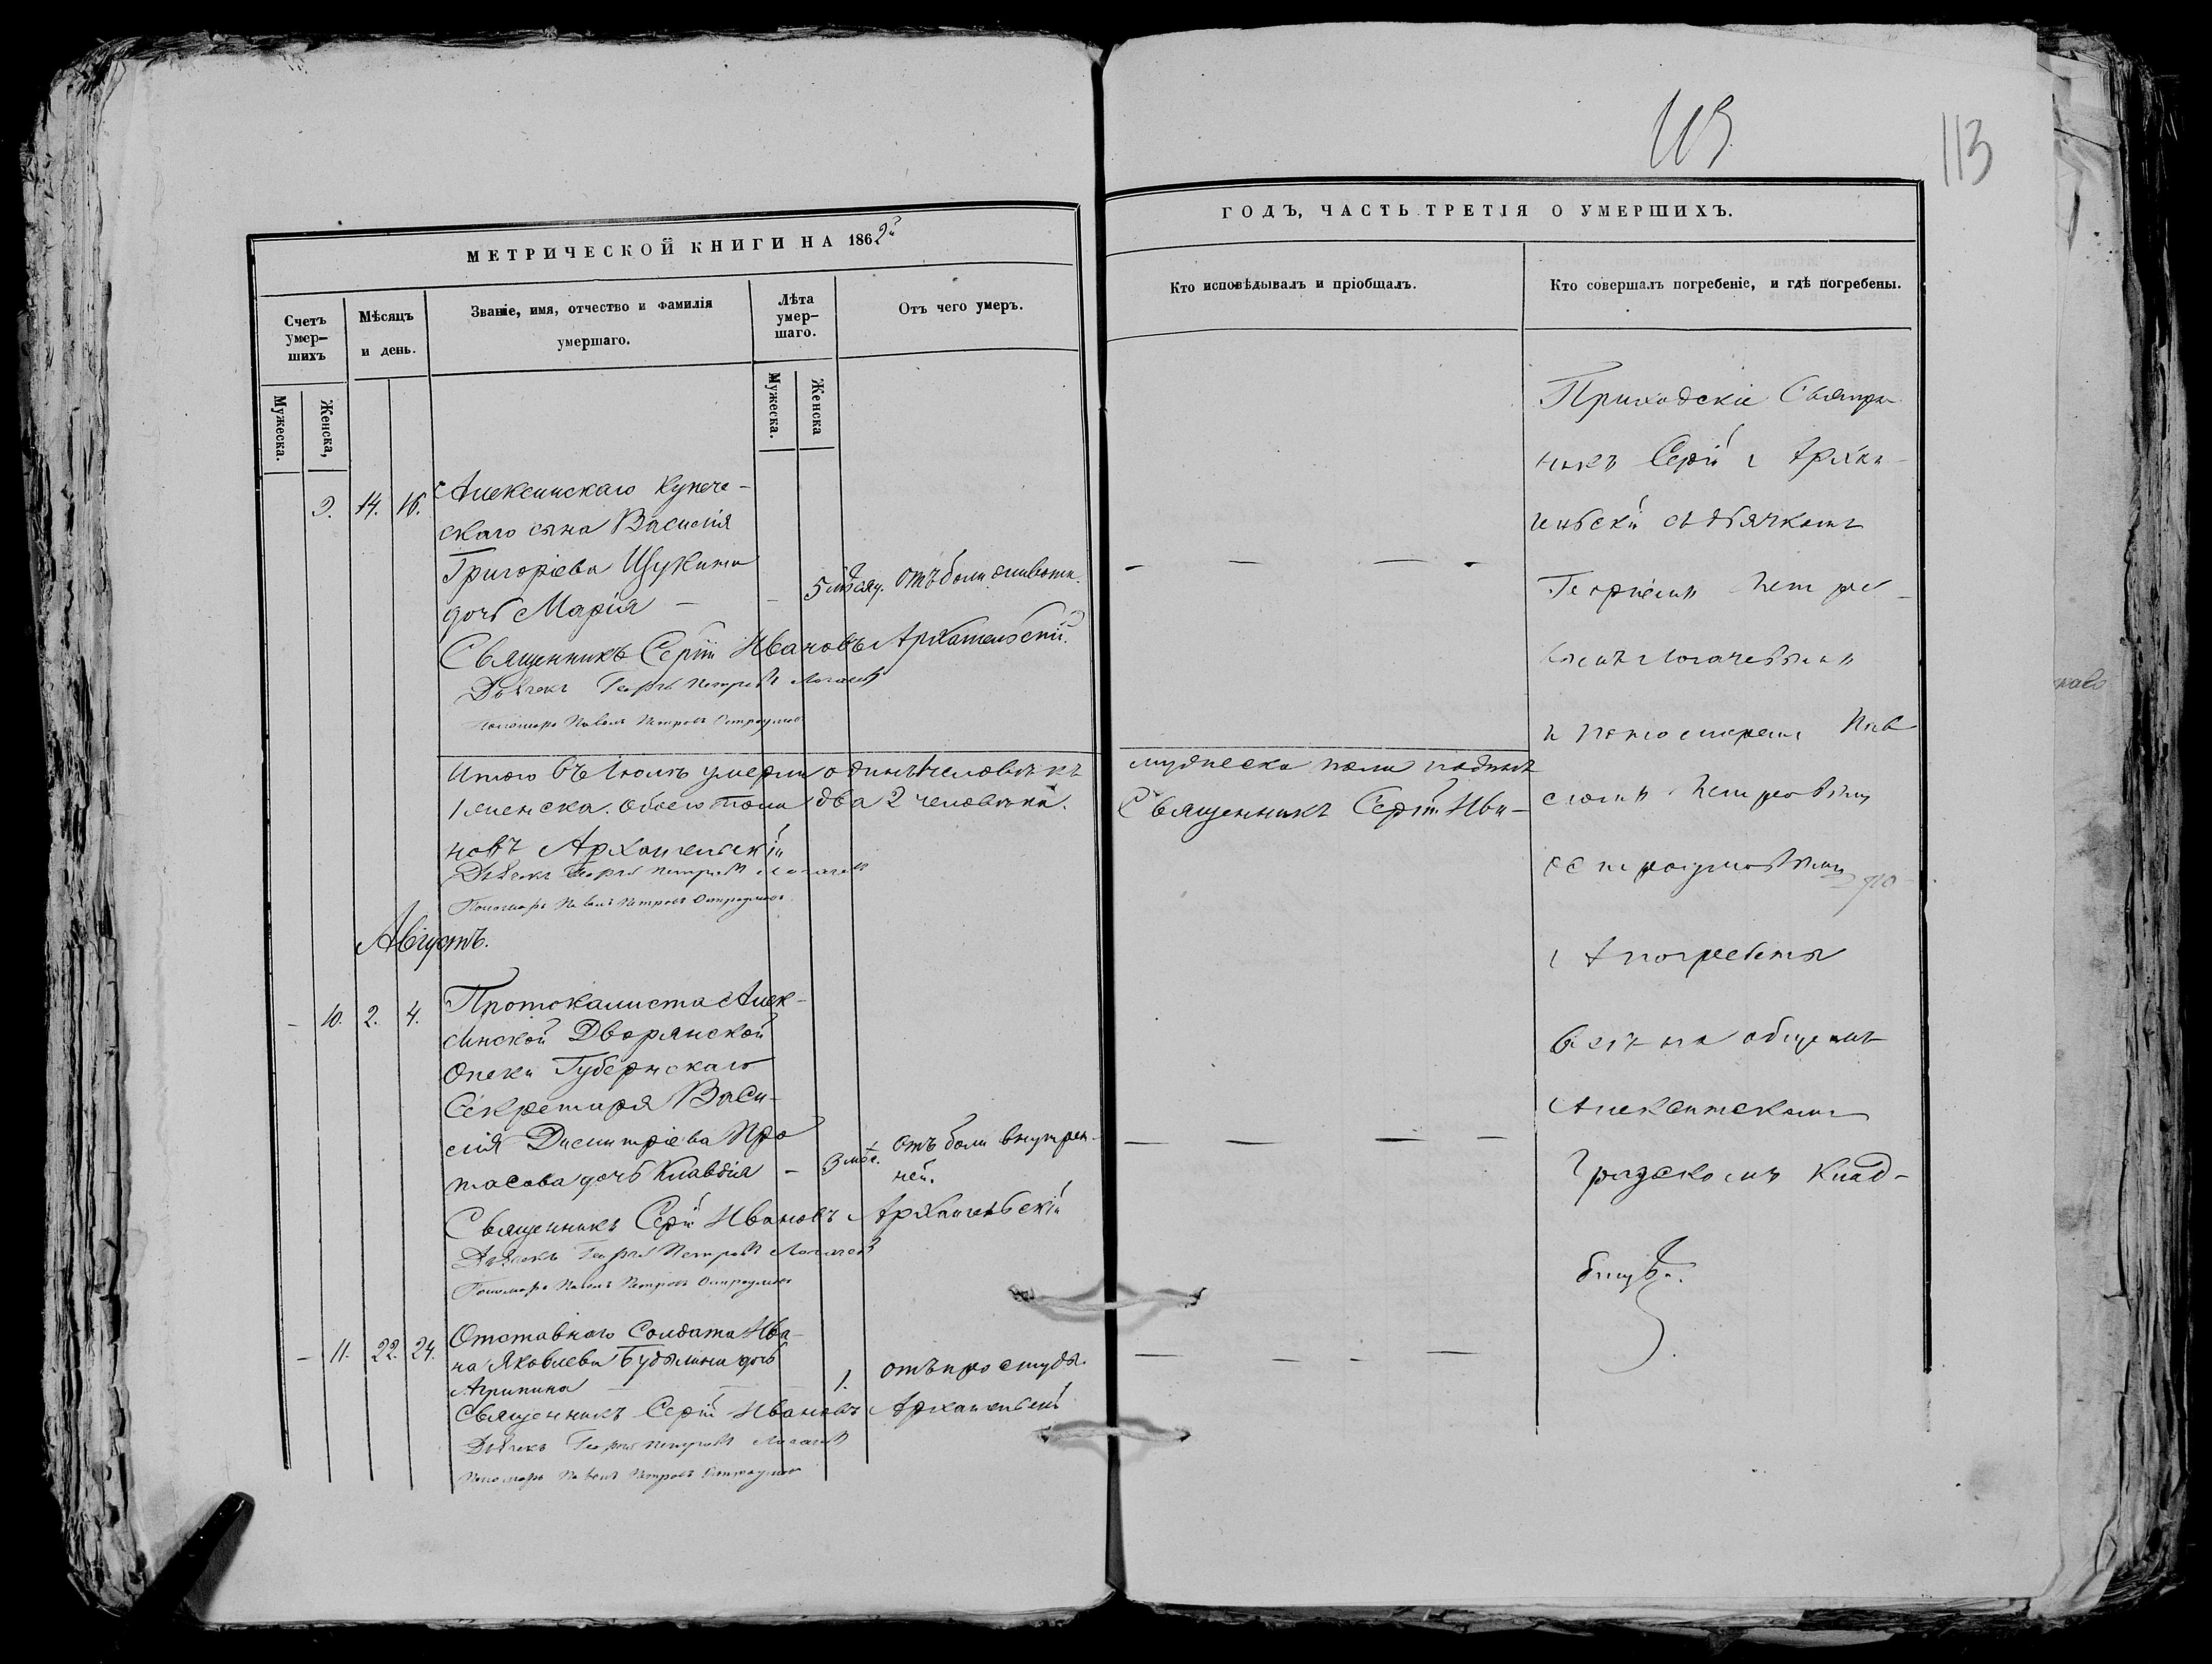 113
113
МЕТРИЧЕСКОЙ КНИГИ НА 1862й
Счетъ умер-шихъ
Мѣсяцъ и день.
Званіе, имя, отчество и фамилія умершаго.
Лѣта умер-шаго.
Отъ чего умеръ.
Мужеска.
Женска,
Мужеска.
Женска
9. 14. 16. Алексинскаго купече-
скаго сына Василія
Григоріева Щукина
дочь Марія — — 5 мѣсяц. отъ боли живота.
Священникъ Сергій Ивановъ Архангельскій.
Дьячекъ Георгій Петровъ Логачевъ
Пономарь Павелъ Петровъ Остроумовъ
Итого въ Іюлѣ умерли одинъ человѣкъ
1 женска. обоего пола два 2 человѣка.
новъ Архангельскій
Дьячекъ Георгій Петровъ Логачевъ
Пономарь Павелъ Петровъ Остроумовъ
Августъ.
— 10. 2. 4. Протоколиста Алек-
синской Дворянской
Опеки Губернскаго
Секретаря Васи-
лія Димитріева Про
тасова дочь Клавдія — 3 мѣс. отъ боли внутрен-
ней.
Священникъ Сергій Ивановъ Архангельскій
Дьячекъ Георгій Петровъ Логачевъ
Пономарь Павелъ Петровъ Остроумовъ
— 11. 22. 24. Отставнаго Солдата Ива-
на Яковлева дочь
Агрипина — — 1. отъ простуды.
Священникъ Сергій Ивановъ Архангельскій
Дьячекъ Георгій Петровъ Логачевъ
Пономарь Павелъ Петровъ Остроумовъ
ГОДЪ, ЧАСТЬ ТРЕТІЯ О УМЕРШИХЪ.
Кто исповѣдывалъ и пріобщалъ.
Кто совершалъ погребеніе, и гдѣ погребены.
— — — —
мужеска пола
Священникъ Сергій Ива-
— — — —
— — — —
Приходскій Священ
никъ Сергій Архан-
гельскій съ дьячкомъ
Георгіемъ Петро-
вымъ Логачевымъ
и пономаремъ Пав
ломъ Петровымъ
Остроумовымъ
погребены
всѣ на общемъ
Алексинскомъ
Градскомъ Клад-
бищѣ.